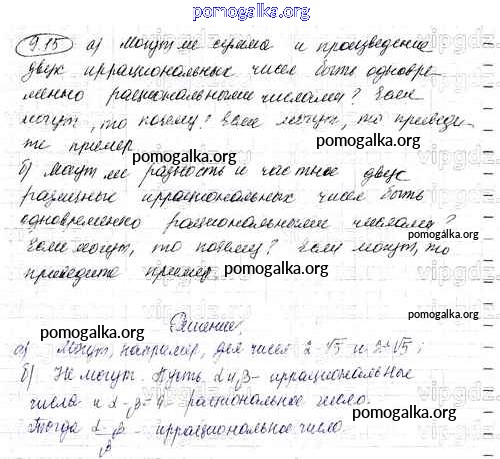 pomogalka.org
9.15 а) Могут ли сумма и произведение
двух иррациональных чисел быть одновре-
менно рациональными числами? Если
могут, то почему? Если могут, то приведи-
те пример.
pomogalka.org
б) Могут ли разность и частное двух
различных иррациональных чисел быть
одновременно рациональными числами?
Если могут, то почему? Если могут, то
приведите пример.
pomogalka.org
Решение.
pomogalka.org
а) Могут, например, для чисел 2-√5 и 2+√5;
б) Не могут. Пусть α и β - иррациональные
числа и α - β = - рациональное число.
pomogalka.org
Тогда α/β - иррациональное число.
pomogalka.org